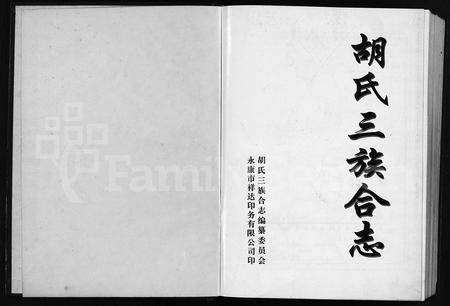 胡氏三族合志
胡氏三族合志编纂委员会
永康市祥达印务有限公司印
Famil